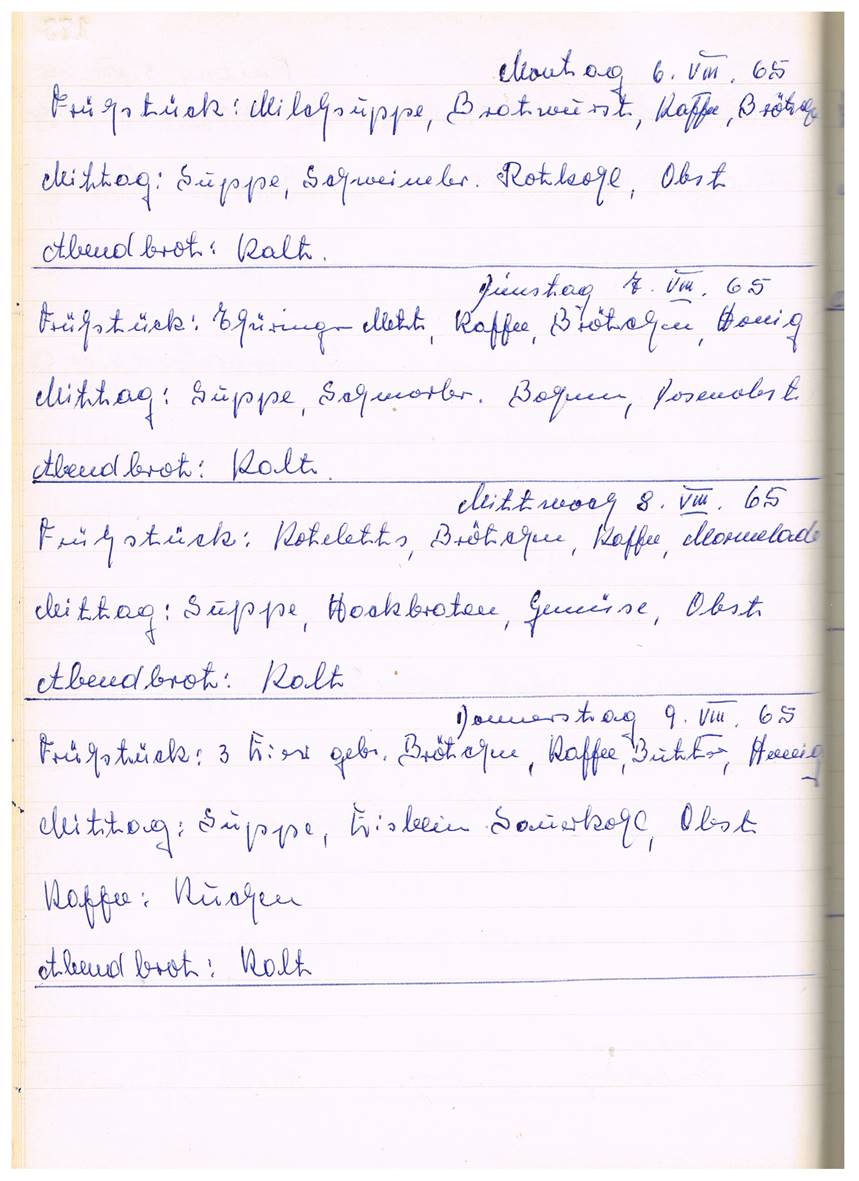 Montag 6. VIII. 65
Frühstück: Milchsuppe, Bratwurst, Kaffee, Brötchen
Mittag: Suppe, Schweinebr. Rotkohl, Obst
Abendbrot: Kalt.
Dienstag 7. VIII. 65
Frühstück: Thüringer Mett, Kaffee, Brötchen, Honig
Mittag: Suppe, Schmorbr. Bohnen, Dosenobst.
Abendbrot: Kalt.
Mittwoch 8. VIII. 65
Frühstück: Koteletts, Brötchen, Kaffee, Marmelade
Mittag: Suppe, Hackbraten, Gemüse, Obst
Abendbrot: Kalt
Donnerstag 9. VIII. 65
Frühstück: 3 Eier gebr. Brötchen, Kaffee, Butter, Honig
Mittag: Suppe, Eisbein Sauerkohl, Obst
Kaffee: Kuchen
Abendbrot: Kalt